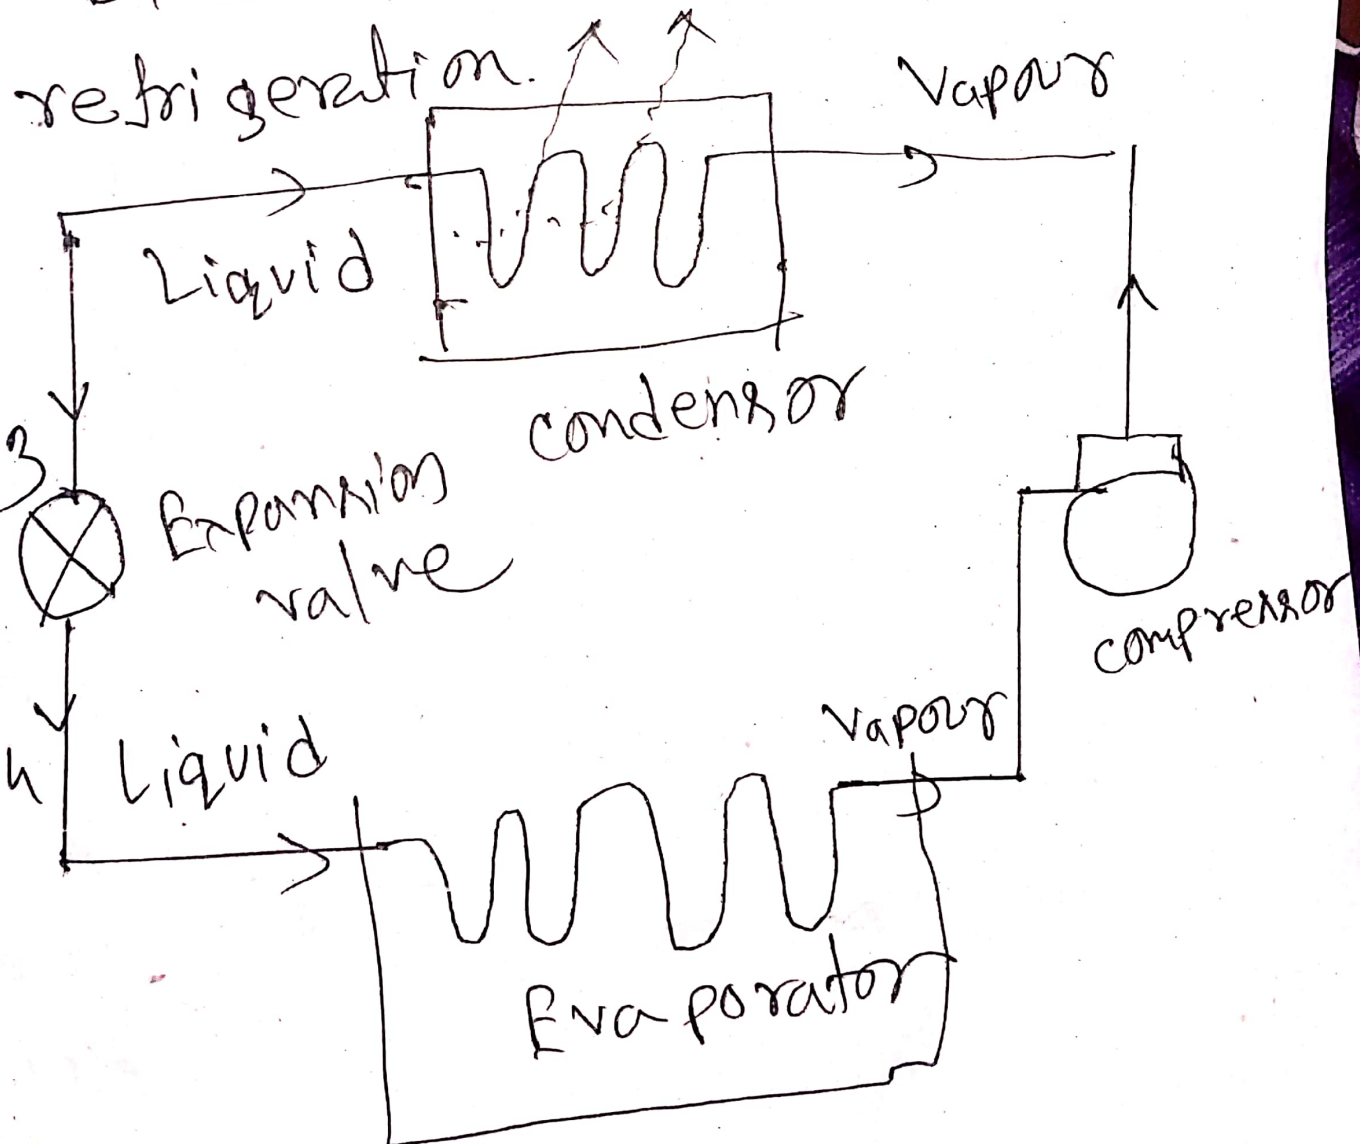 refrigeration.
Vapour
Liquid
condensor
3
Expansion
valve
compressor
Vapour
4
Liquid
Evaporator